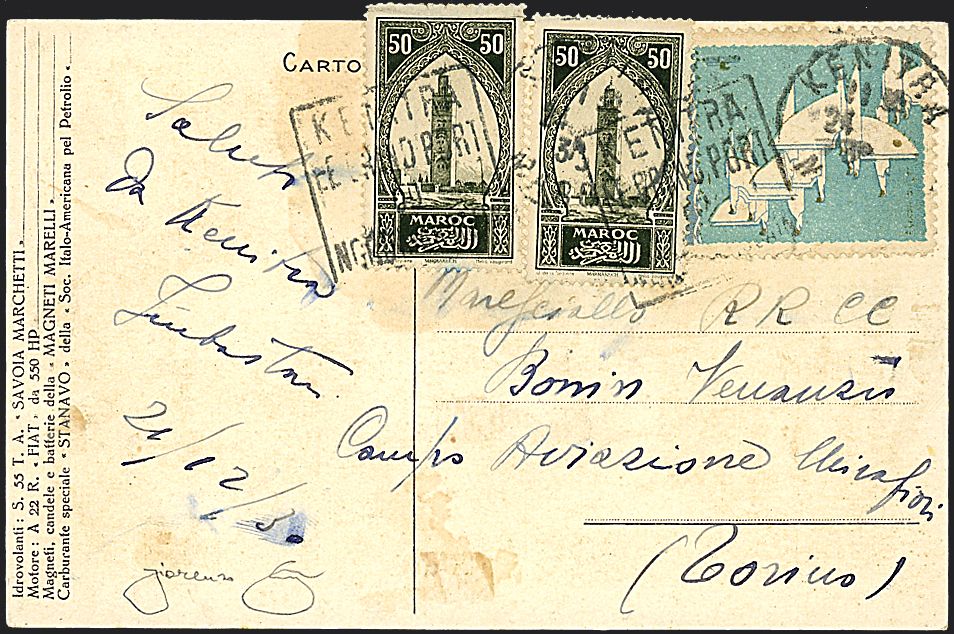 Idrovolanti: S. 55 T. A. « SAVOIA MARCHETTI »
Motore: A 22 R. « FIAT » da 550 HP
Magneti, candele e batterie della « MAGNETI MARELLI »
Carburante speciale « STANAVO » della « Soc. Italo-Americana pel Petrolio »
CARTO
50 50
MAROC
50 50
MAROC
KENITRA
KENITRA
KENITRA
Saluti
Da Kenitra
21/12/30
Maresciallo RR CC
Bonin Venanzio
Campo Aviazione Mirafiori
(Torino)